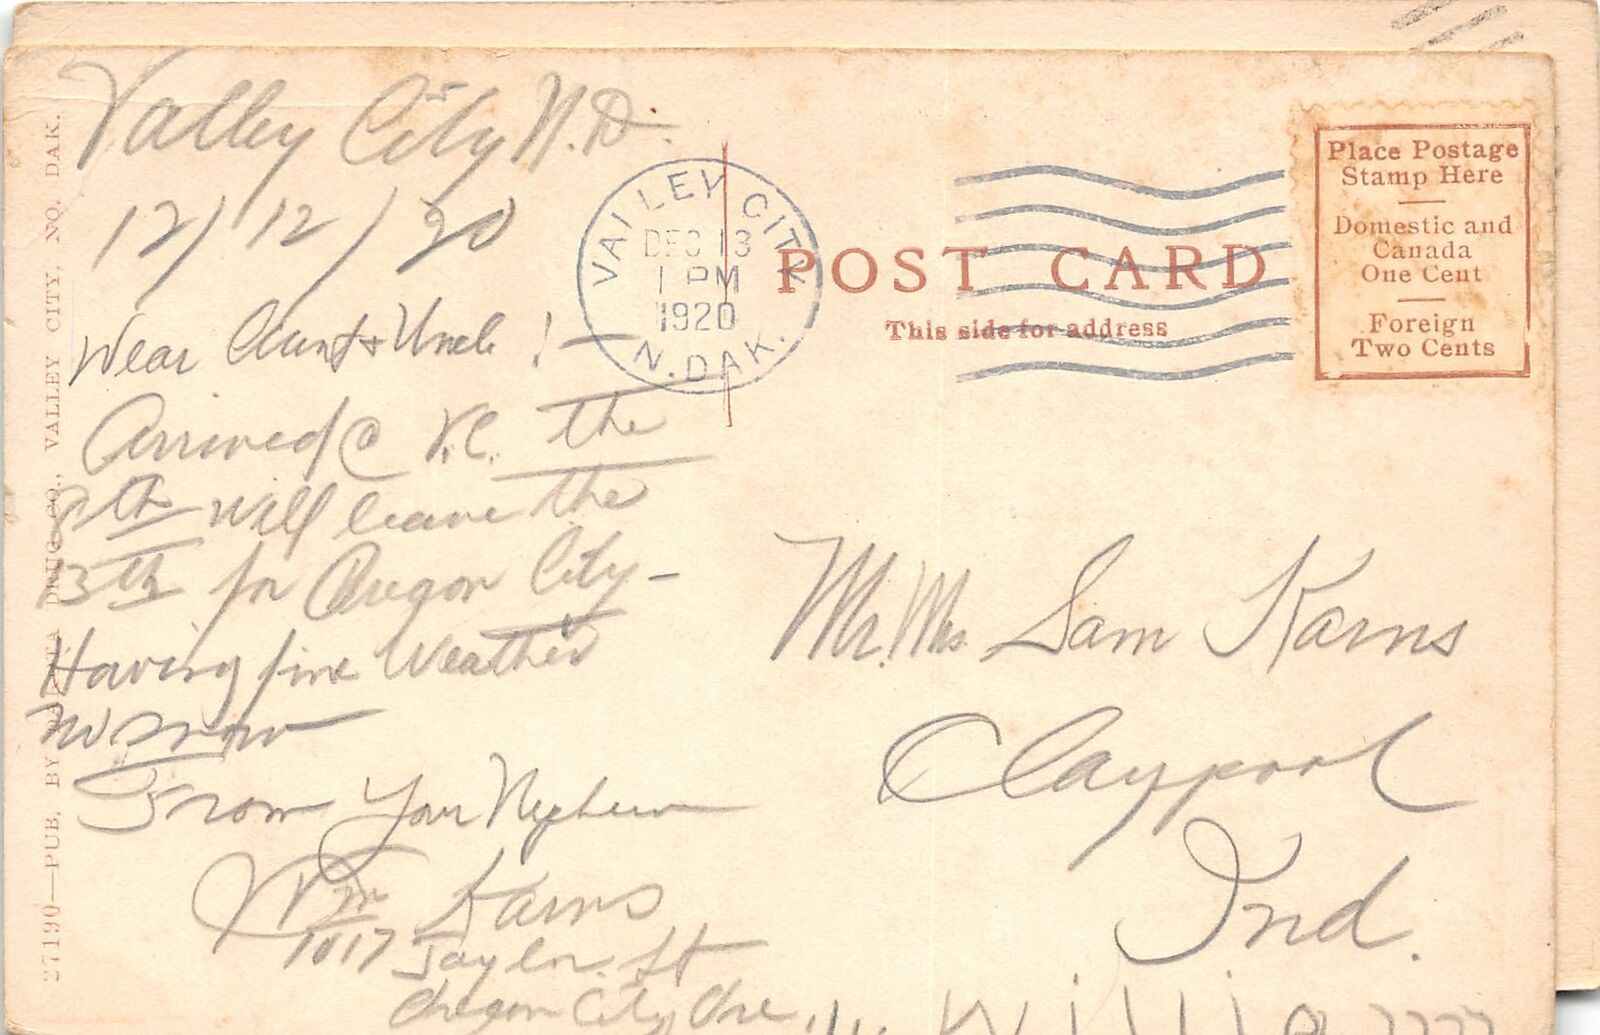 Valley City N.D.
12/12/20
Dear Aunt & Uncle! —
Arrived @ V.C. the
8th will leave the
13th for Oregon City —
Having fine Weather
no snow
From Your Nephew
Wm Karns
1017 Taylor St
Oregon City Ore
27190—PUB. BY DAKOTA DRUG CO., VALLEY CITY, NO. DAK.
VALLEY CITY
DEC 13
1 PM
1920
N. DAK.
POST CARD
This side for address
Place Postage
Stamp Here
Domestic and
Canada
One Cent
Foreign
Two Cents
Mr. Mrs. Sam Karns
Claypool
Ind.
Willie ????